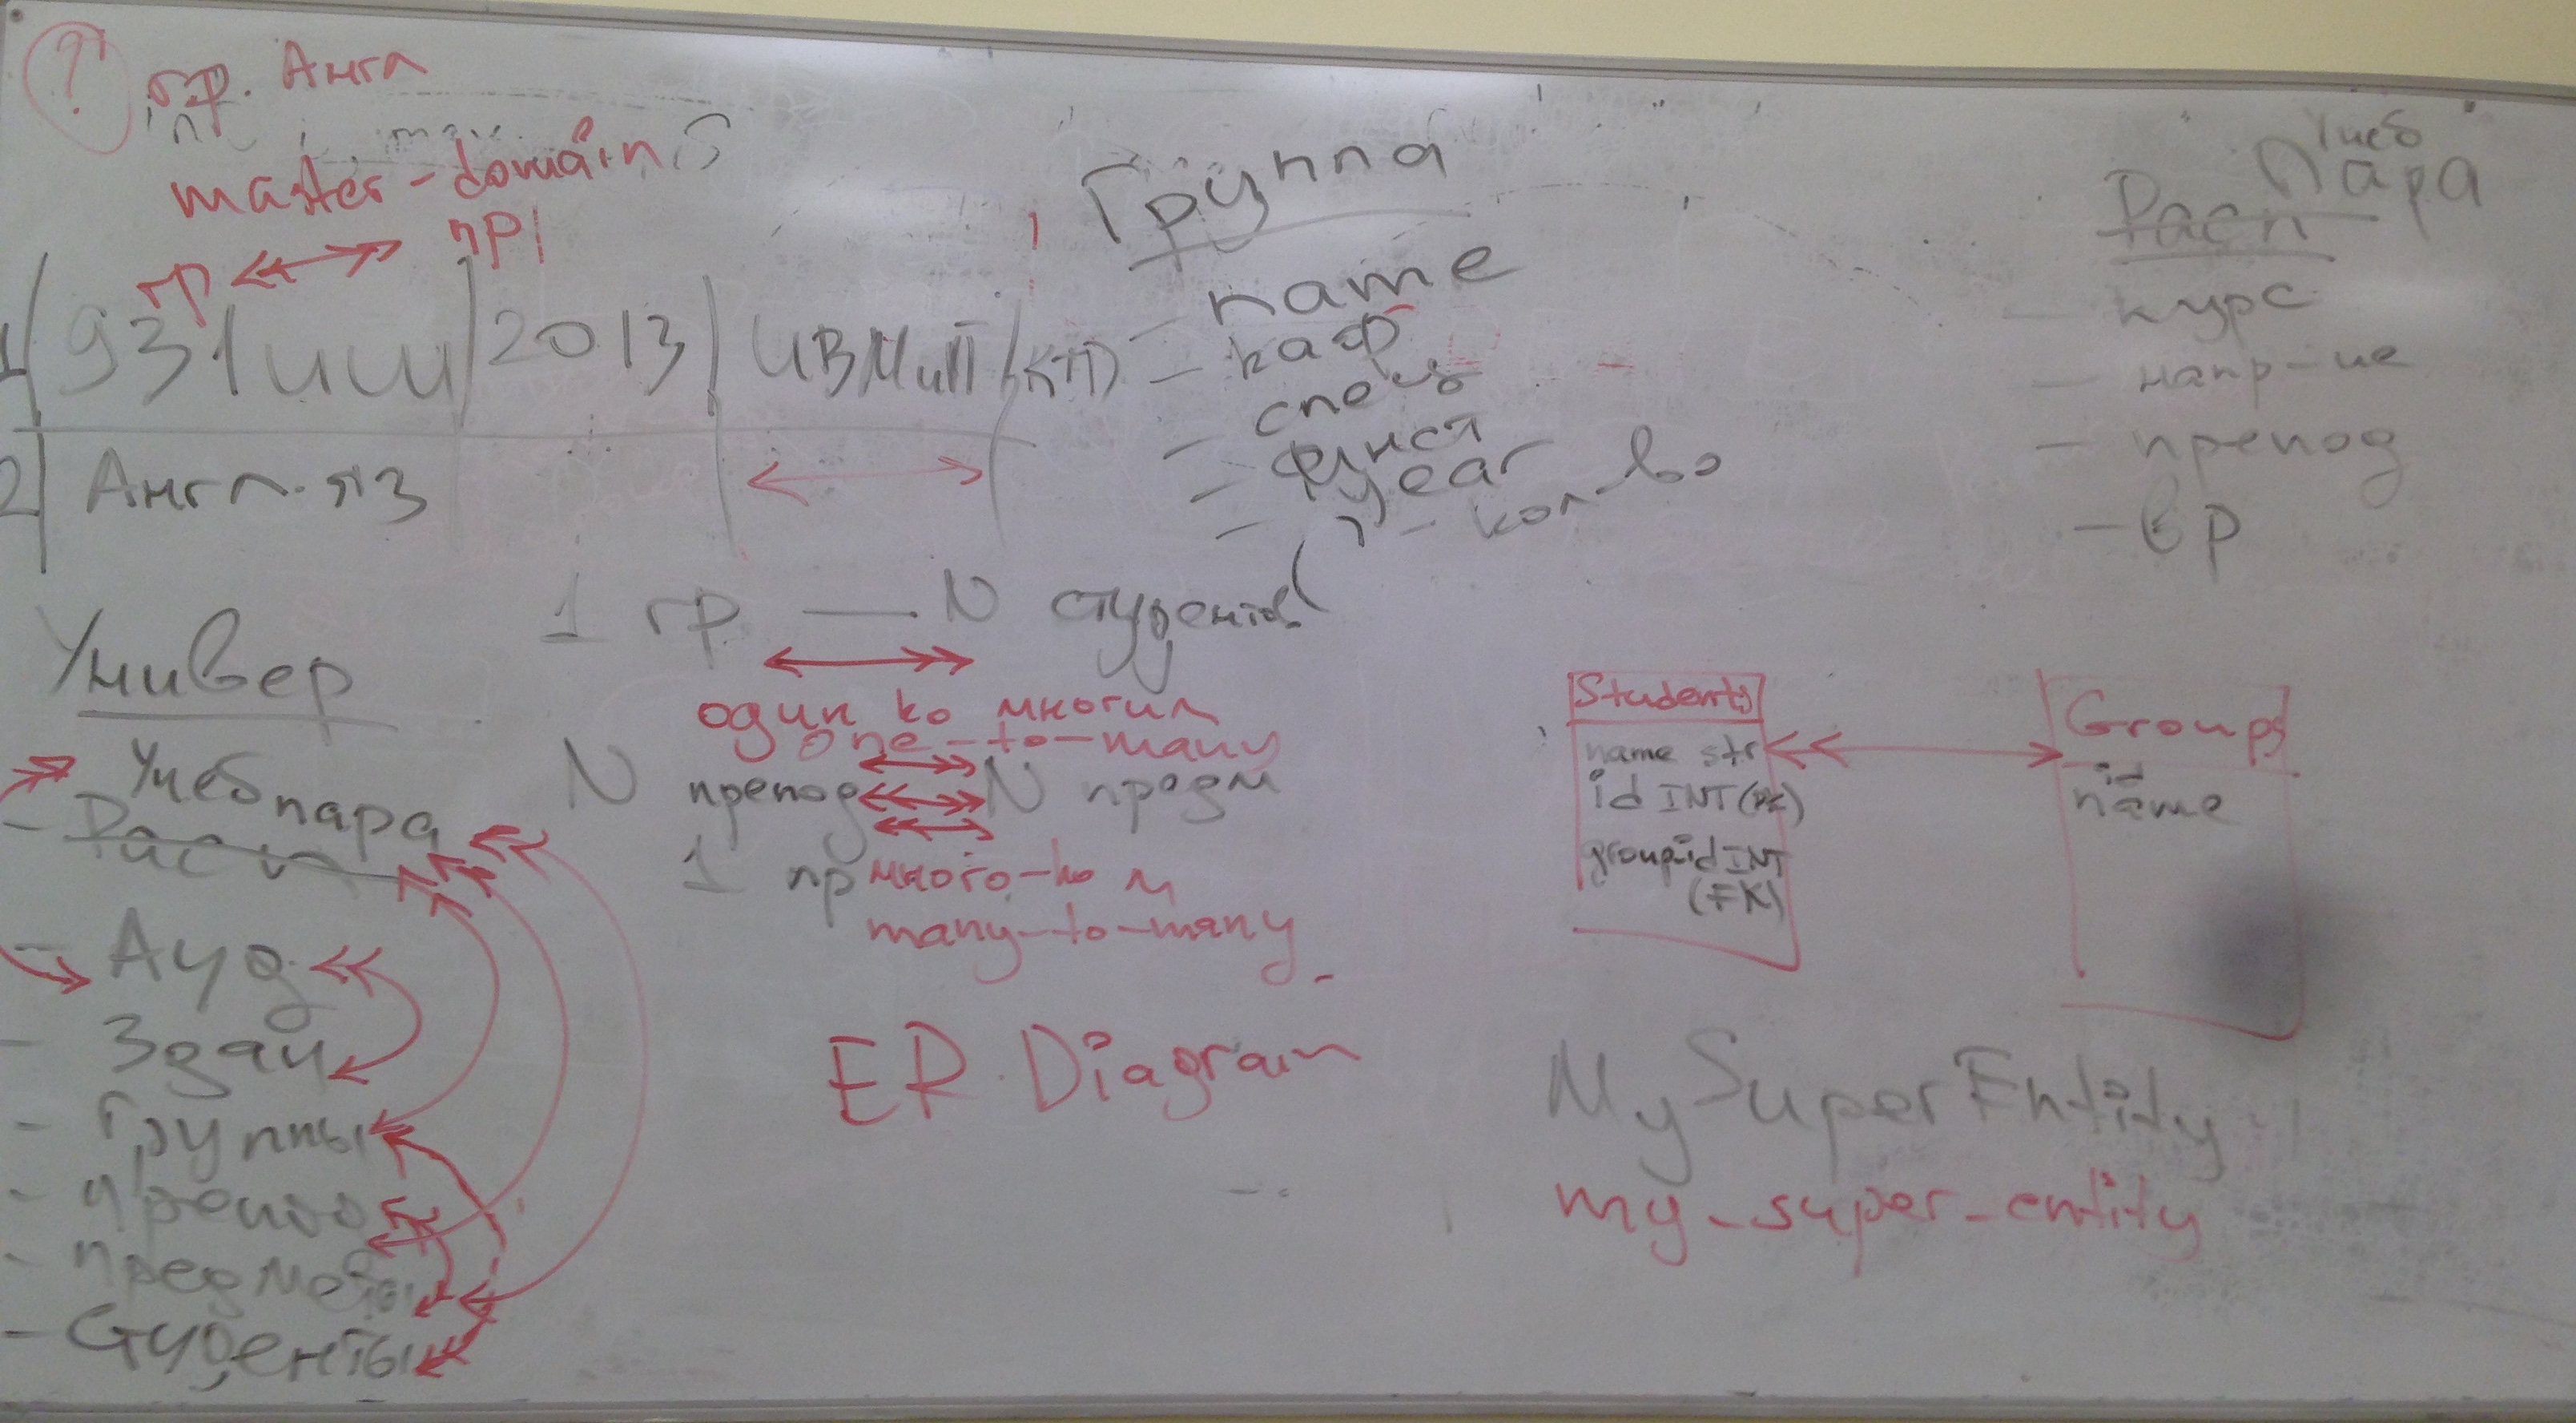 ?
гр. Англ
master-domain
гр
1 931 иш 2013 ИВМиИТ (КТП)
2 Англ. яз
Группа
- name
- каф
- спец
- year
- кол-во
Учеб
Пара
Расп
- курс
- напр-ие
- препод
- вр
1 гр — N студентов
один ко многим
one-to-many
N препод N предм
1 пр
много-ко м
many-to-many
ER Diagram
Универ
Учеб пара
- Расп
- Ауд
- Здан
- Группы
- препод
- предметы
- Студенты
Students
name str
id INT (PK)
groupid INT
(FK)
Groups
id
name
MySuperEntity
my_super_entity